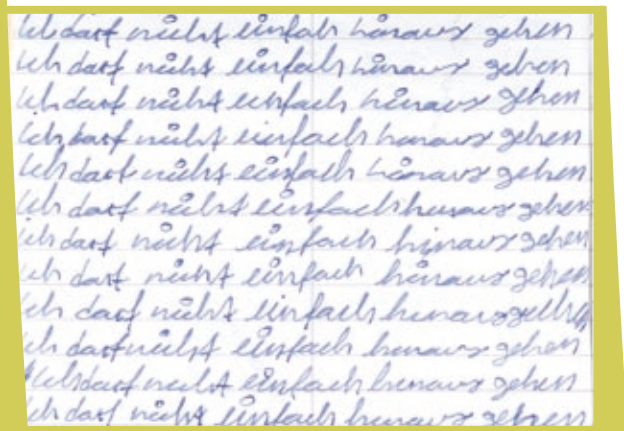 Ich darf nicht einfach hinaus gehen
Ich darf nicht einfach hinaus gehen
Ich darf nicht einfach hinaus gehen
Ich darf nicht einfach hinaus gehen
Ich darf nicht einfach hinaus gehen
Ich darf nicht einfach hinaus gehen
Ich darf nicht einfach hinaus gehen
Ich darf nicht einfach hinaus gehen
Ich darf nicht einfach hinaus gehen
Ich darf nicht einfach hinaus gehen
Ich darf nicht einfach hinaus gehen
Ich darf nicht einfach hinaus gehen